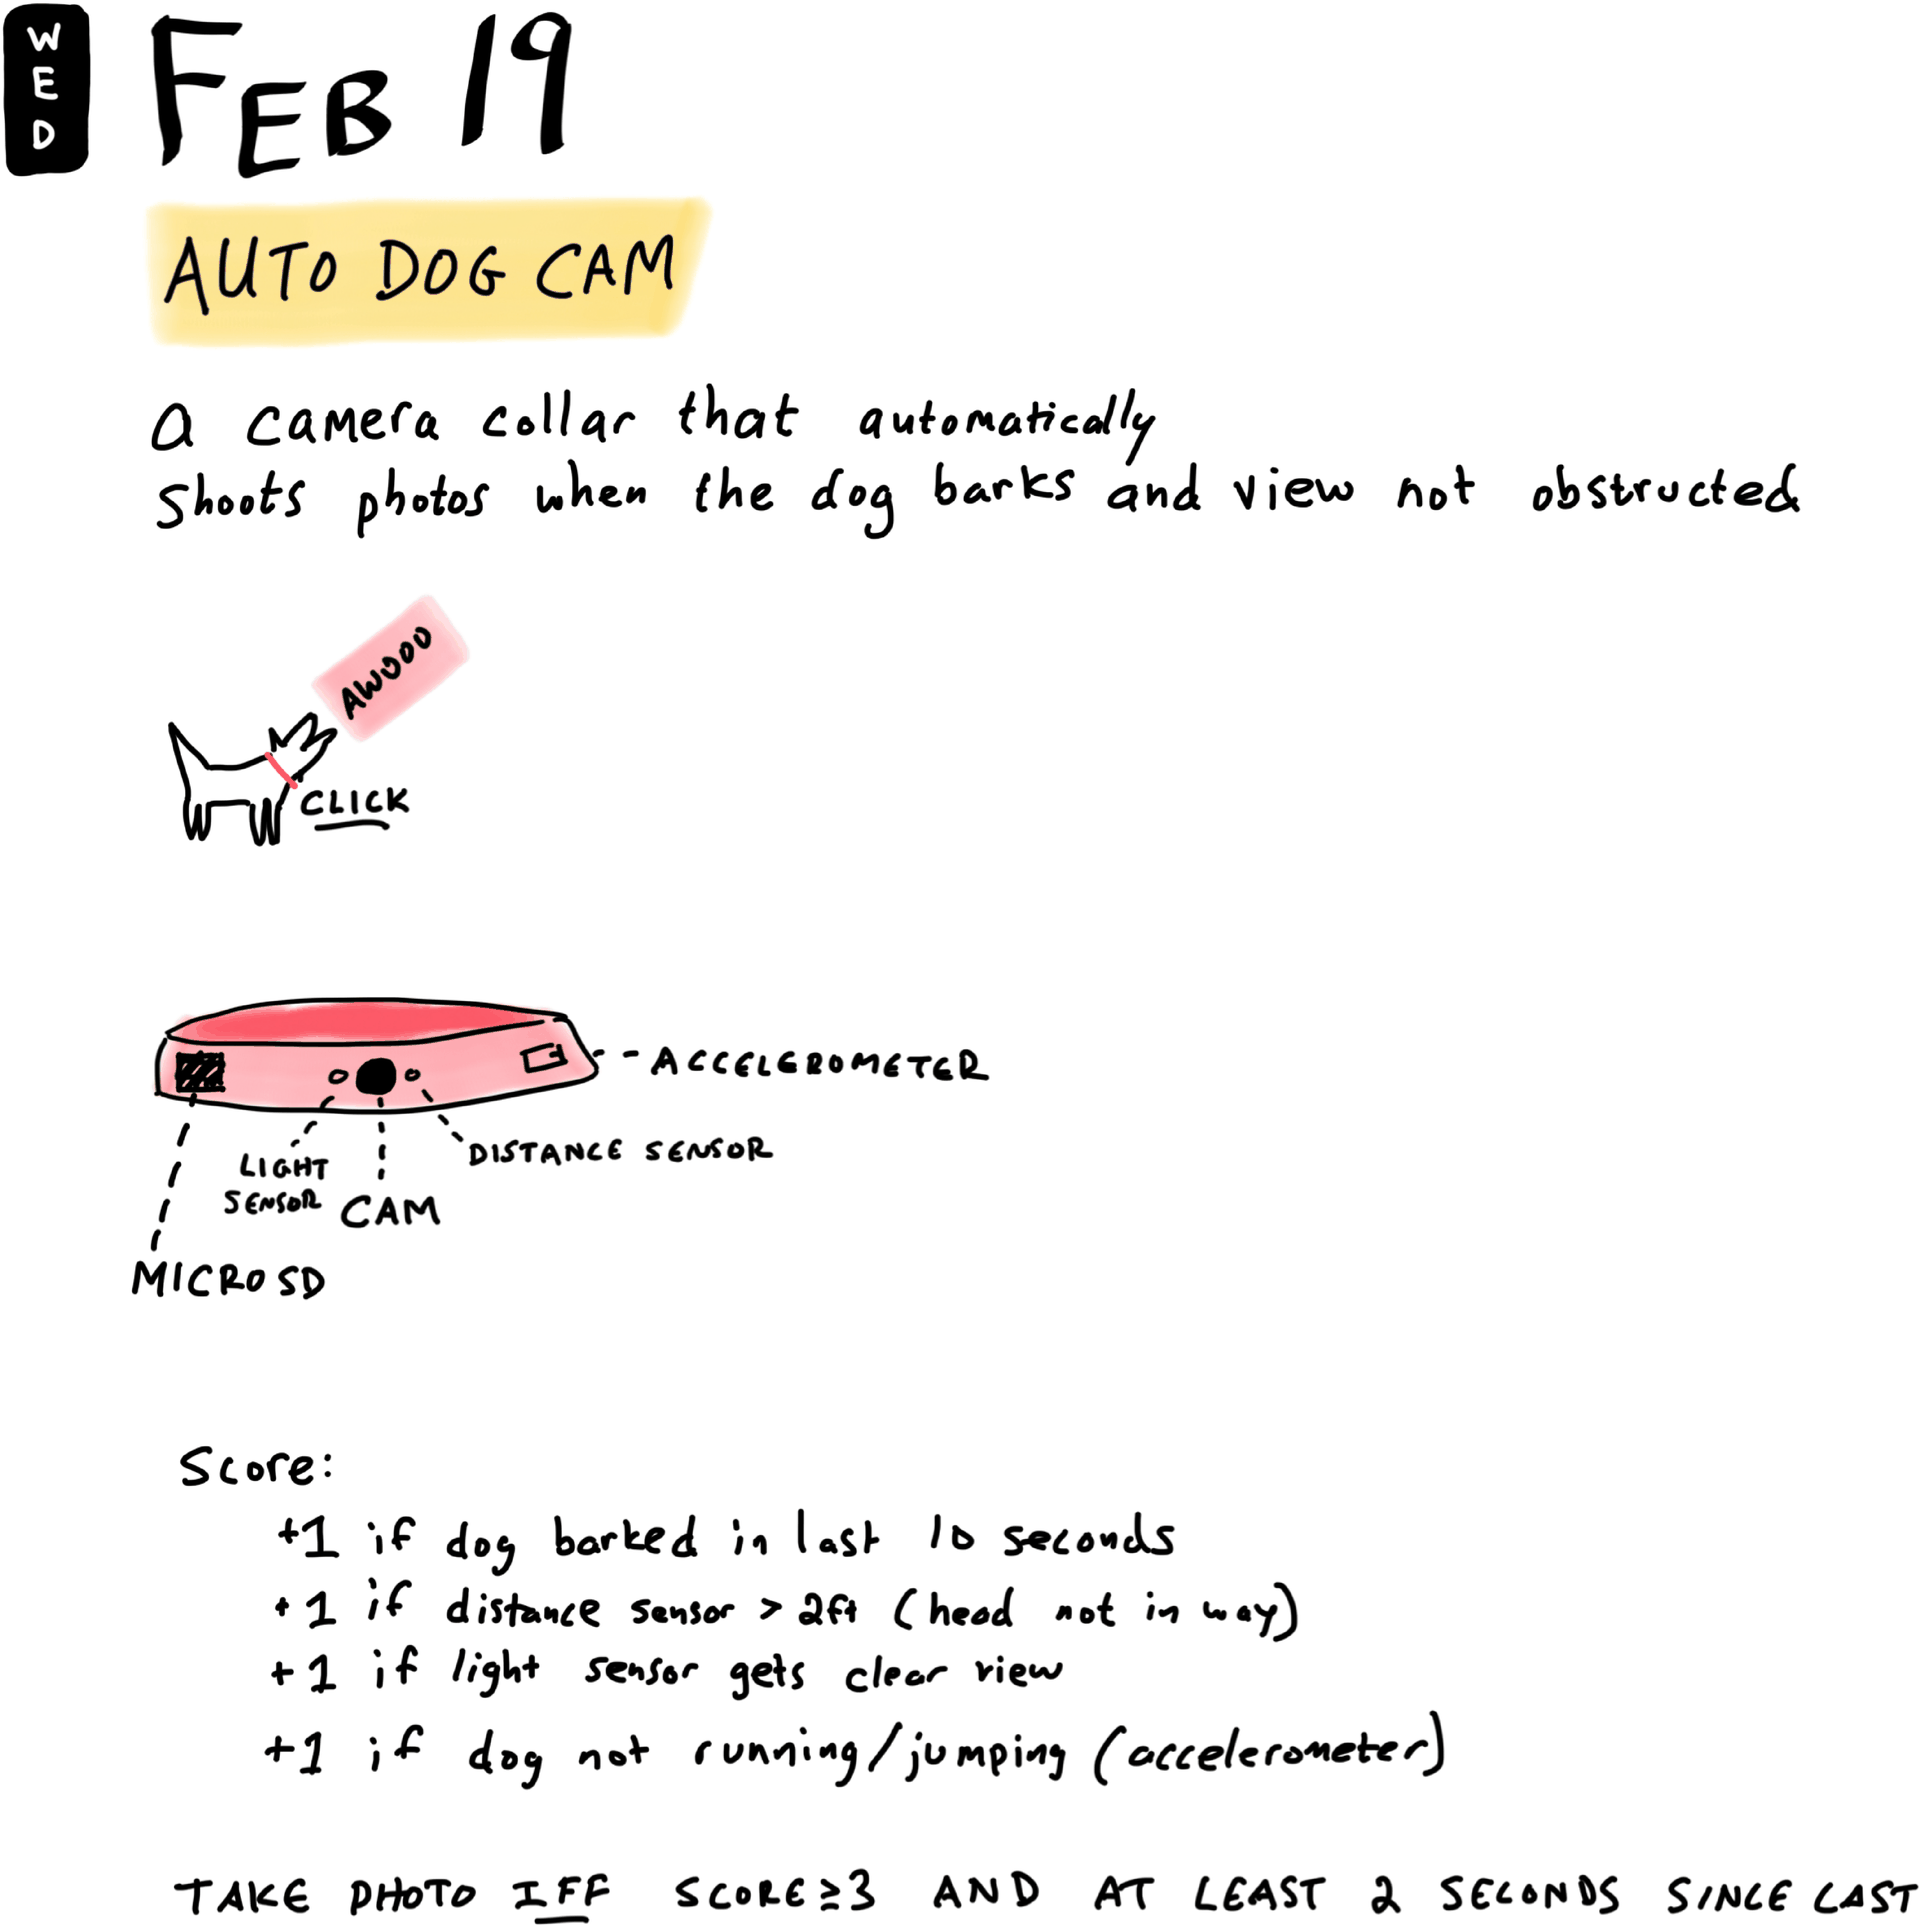 WED
FEB 19
AUTO DOG CAM
a camera collar that automatically
shoots photos when the dog barks and view not obstructed
AWOOO
CLICK
ACCELEROMETER
DISTANCE SENSOR
LIGHT
SENSOR
CAM
MICROSD
Score:
+1 if dog barked in last 10 seconds
+1 if distance sensor > 2ft (head not in way)
+1 if light sensor gets clear view
+1 if dog not running/jumping (accelerometer)
TAKE PHOTO IFF SCORE≥3 AND AT LEAST 2 SECONDS SINCE LAST